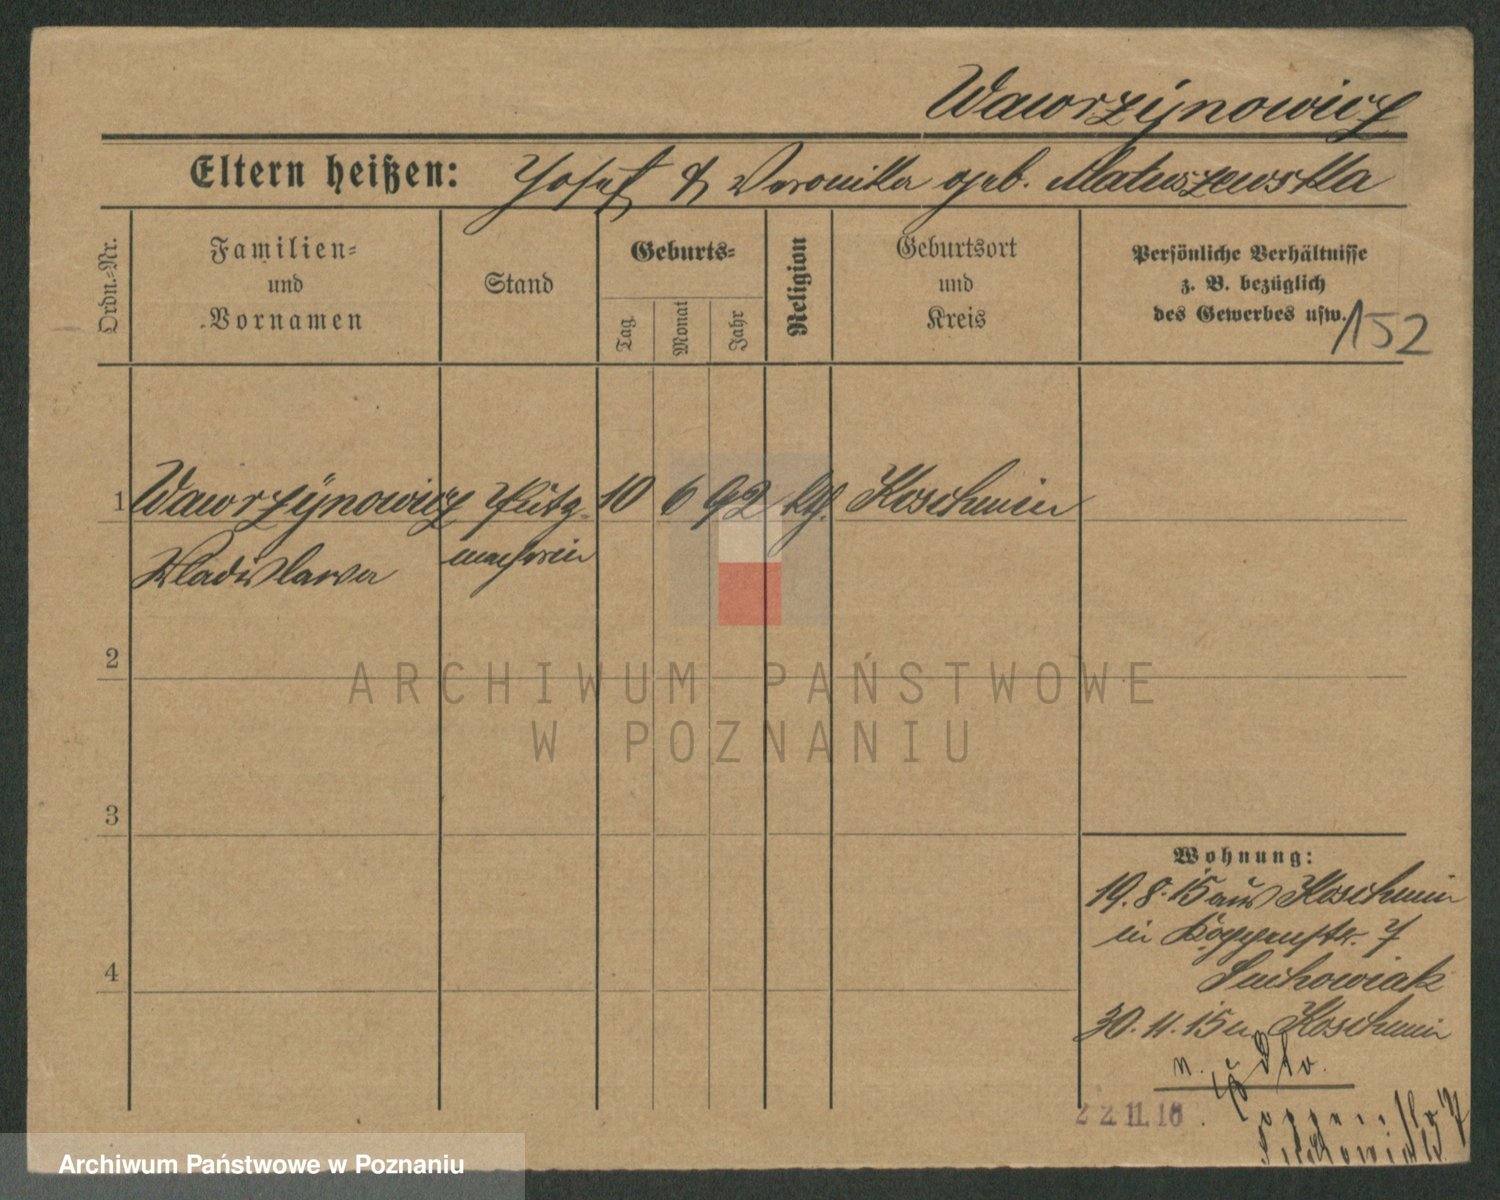 Wawrzÿnowicz
Eltern heißen: Josef & Veronika geb. Matuszewska
Ordn.-Nr.
Familien-
und
Vornamen
Stand
Geburts-
Tag.
Monat
Jahr
Religion
Geburtsort
und
Kreis
Persönliche Verhältnisse
z. B. bezüglich
des Gewerbes usw.
152
1 Wawrzÿnowicz Putz- 10 6 92 kth. Koschmin
Wladislawa macherin
2
3
4
Wohnung:
19.8.15 aus Koschmin
in Köppenstr. 7
Suchowiak
30.11.15 n. Koschmin
22.11.16
ARCHIWUM PAŃSTWOWE
W POZNANIU
Archiwum Państwowe w Poznaniu